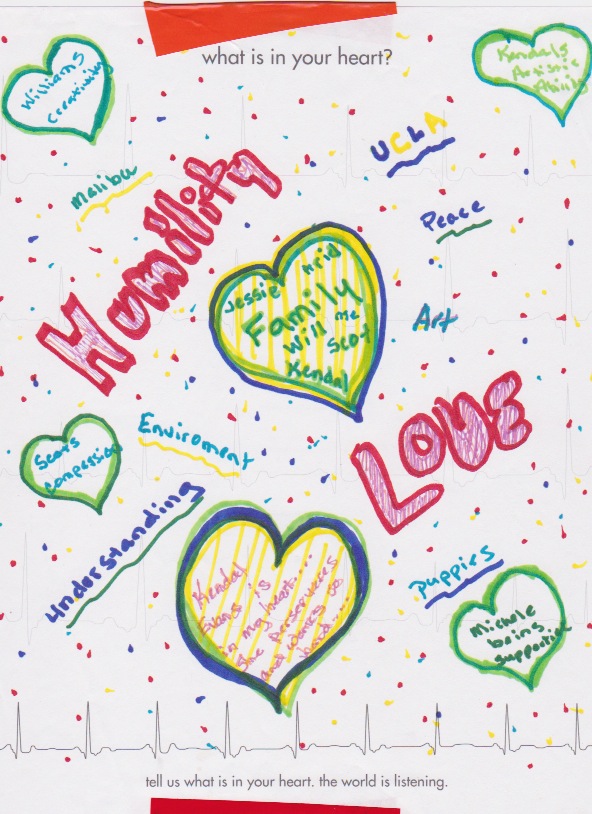 what is in your heart?
Williams
Creativity
Kendals
Artistic
Ability
UCLA
Malibu
Humility
Peace
Jessie
Family
Will me
Scot
Kendal
Art
LOVE
Enviroment
Compession
Understanding
Kendal
Evans is
in my heart....
She Perserveeres
and works so
puppies
Michele
being
supportive
tell us what is in your heart. the world is listening.